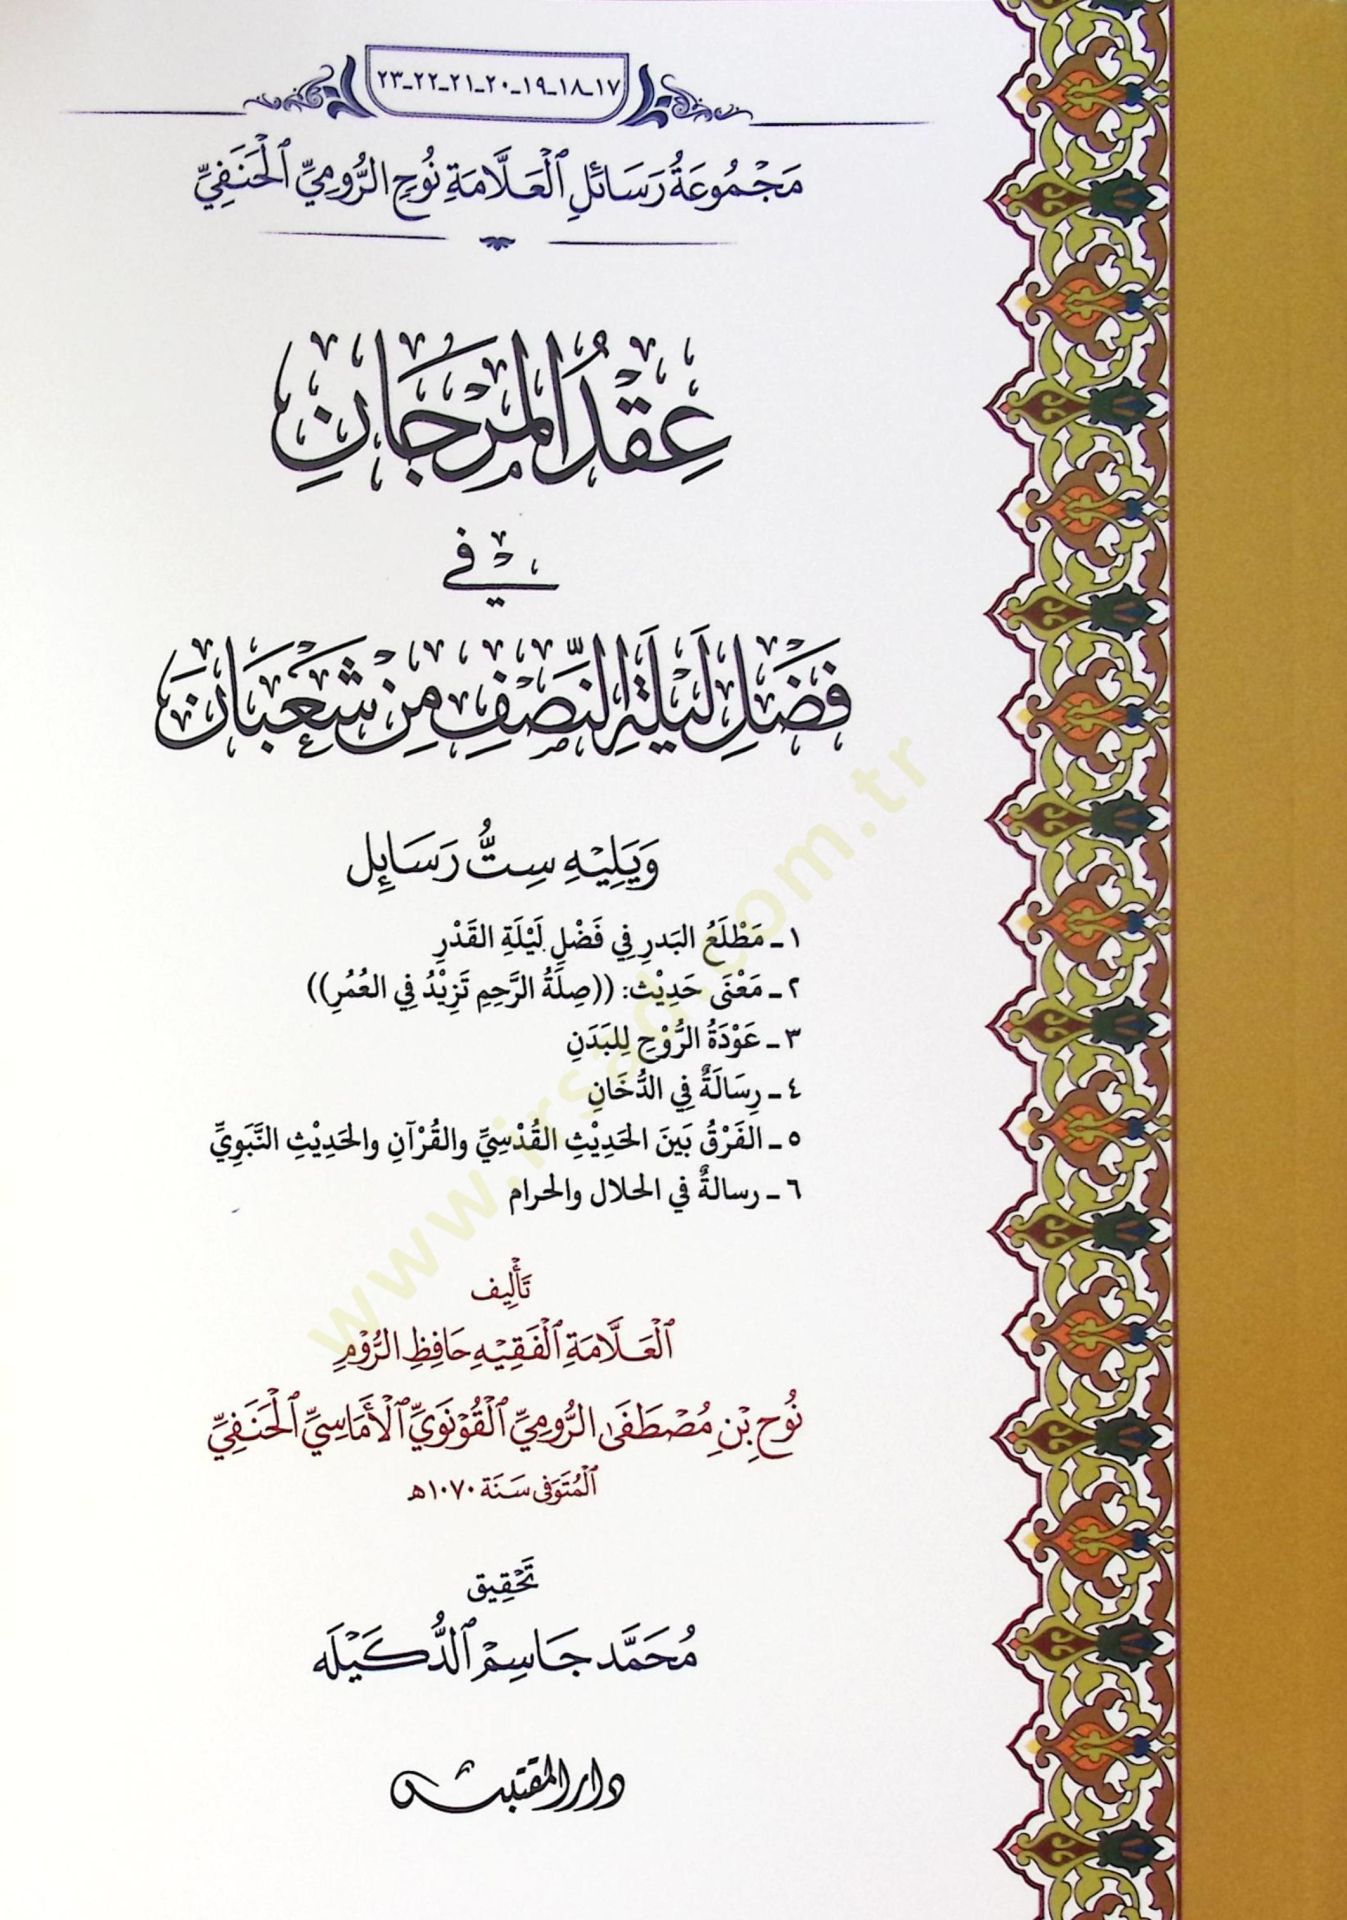 ١٧ـ١٨ـ١٩ـ٢٠ـ٢١ـ٢٢ـ٢٣
مَجْمُوعَةُ رَسَائِلِ ٱلْعَلَّامَةِ نُوحِ الرُّومِيِّ ٱلْحَنَفِيِّ
عِقْدُ المَرْجَانِ
فِي
فَضْلِ لَيْلَةِ النِّصْفِ مِنْ شَعْبَانَ
وَيَلِيْهِ سِتُّ رَسَائِل
١ ـ مَطْلَعُ البَدرِ فِي فَضْلِ لَيْلَةِ القَدْرِ
٢ ـ مَعْنَى حَدِيْث: ((صِلَةُ الرَّحِمِ تَزِيْدُ فِي العُمُرِ))
٣ ـ عَوْدَةُ الرُّوْحِ لِلبَدَنِ
٤ ـ رِسَالَةٌ فِي الدُّخَانِ
٥ ـ الفَرْقُ بَينَ الحَدِيْثِ القُدْسِيِّ والقُرْآنِ والحَدِيْثِ النَّبَوِيِّ
٦ ـ رسالةٌ في الحلال والحرام
تَأْلِيف
ٱلْعَلَّامَةِ ٱلْفَقِيْهِ حَافِظِ الرُّوْمِ
نُوْحِ بْنِ مُصْطَفَى الرُّومِيِّ ٱلْقُوْنَوِيِّ ٱلْأَمَاسِيِّ ٱلْحَنَفِيِّ
ٱلْمُتَوَفَّى سَنَة ١٠٧٠هـ
تَحْقِيق
مُحَمَّد جَاسِمْ ٱلدُّكَيْلَه
دار المقتبس
www.irsad.com.tr